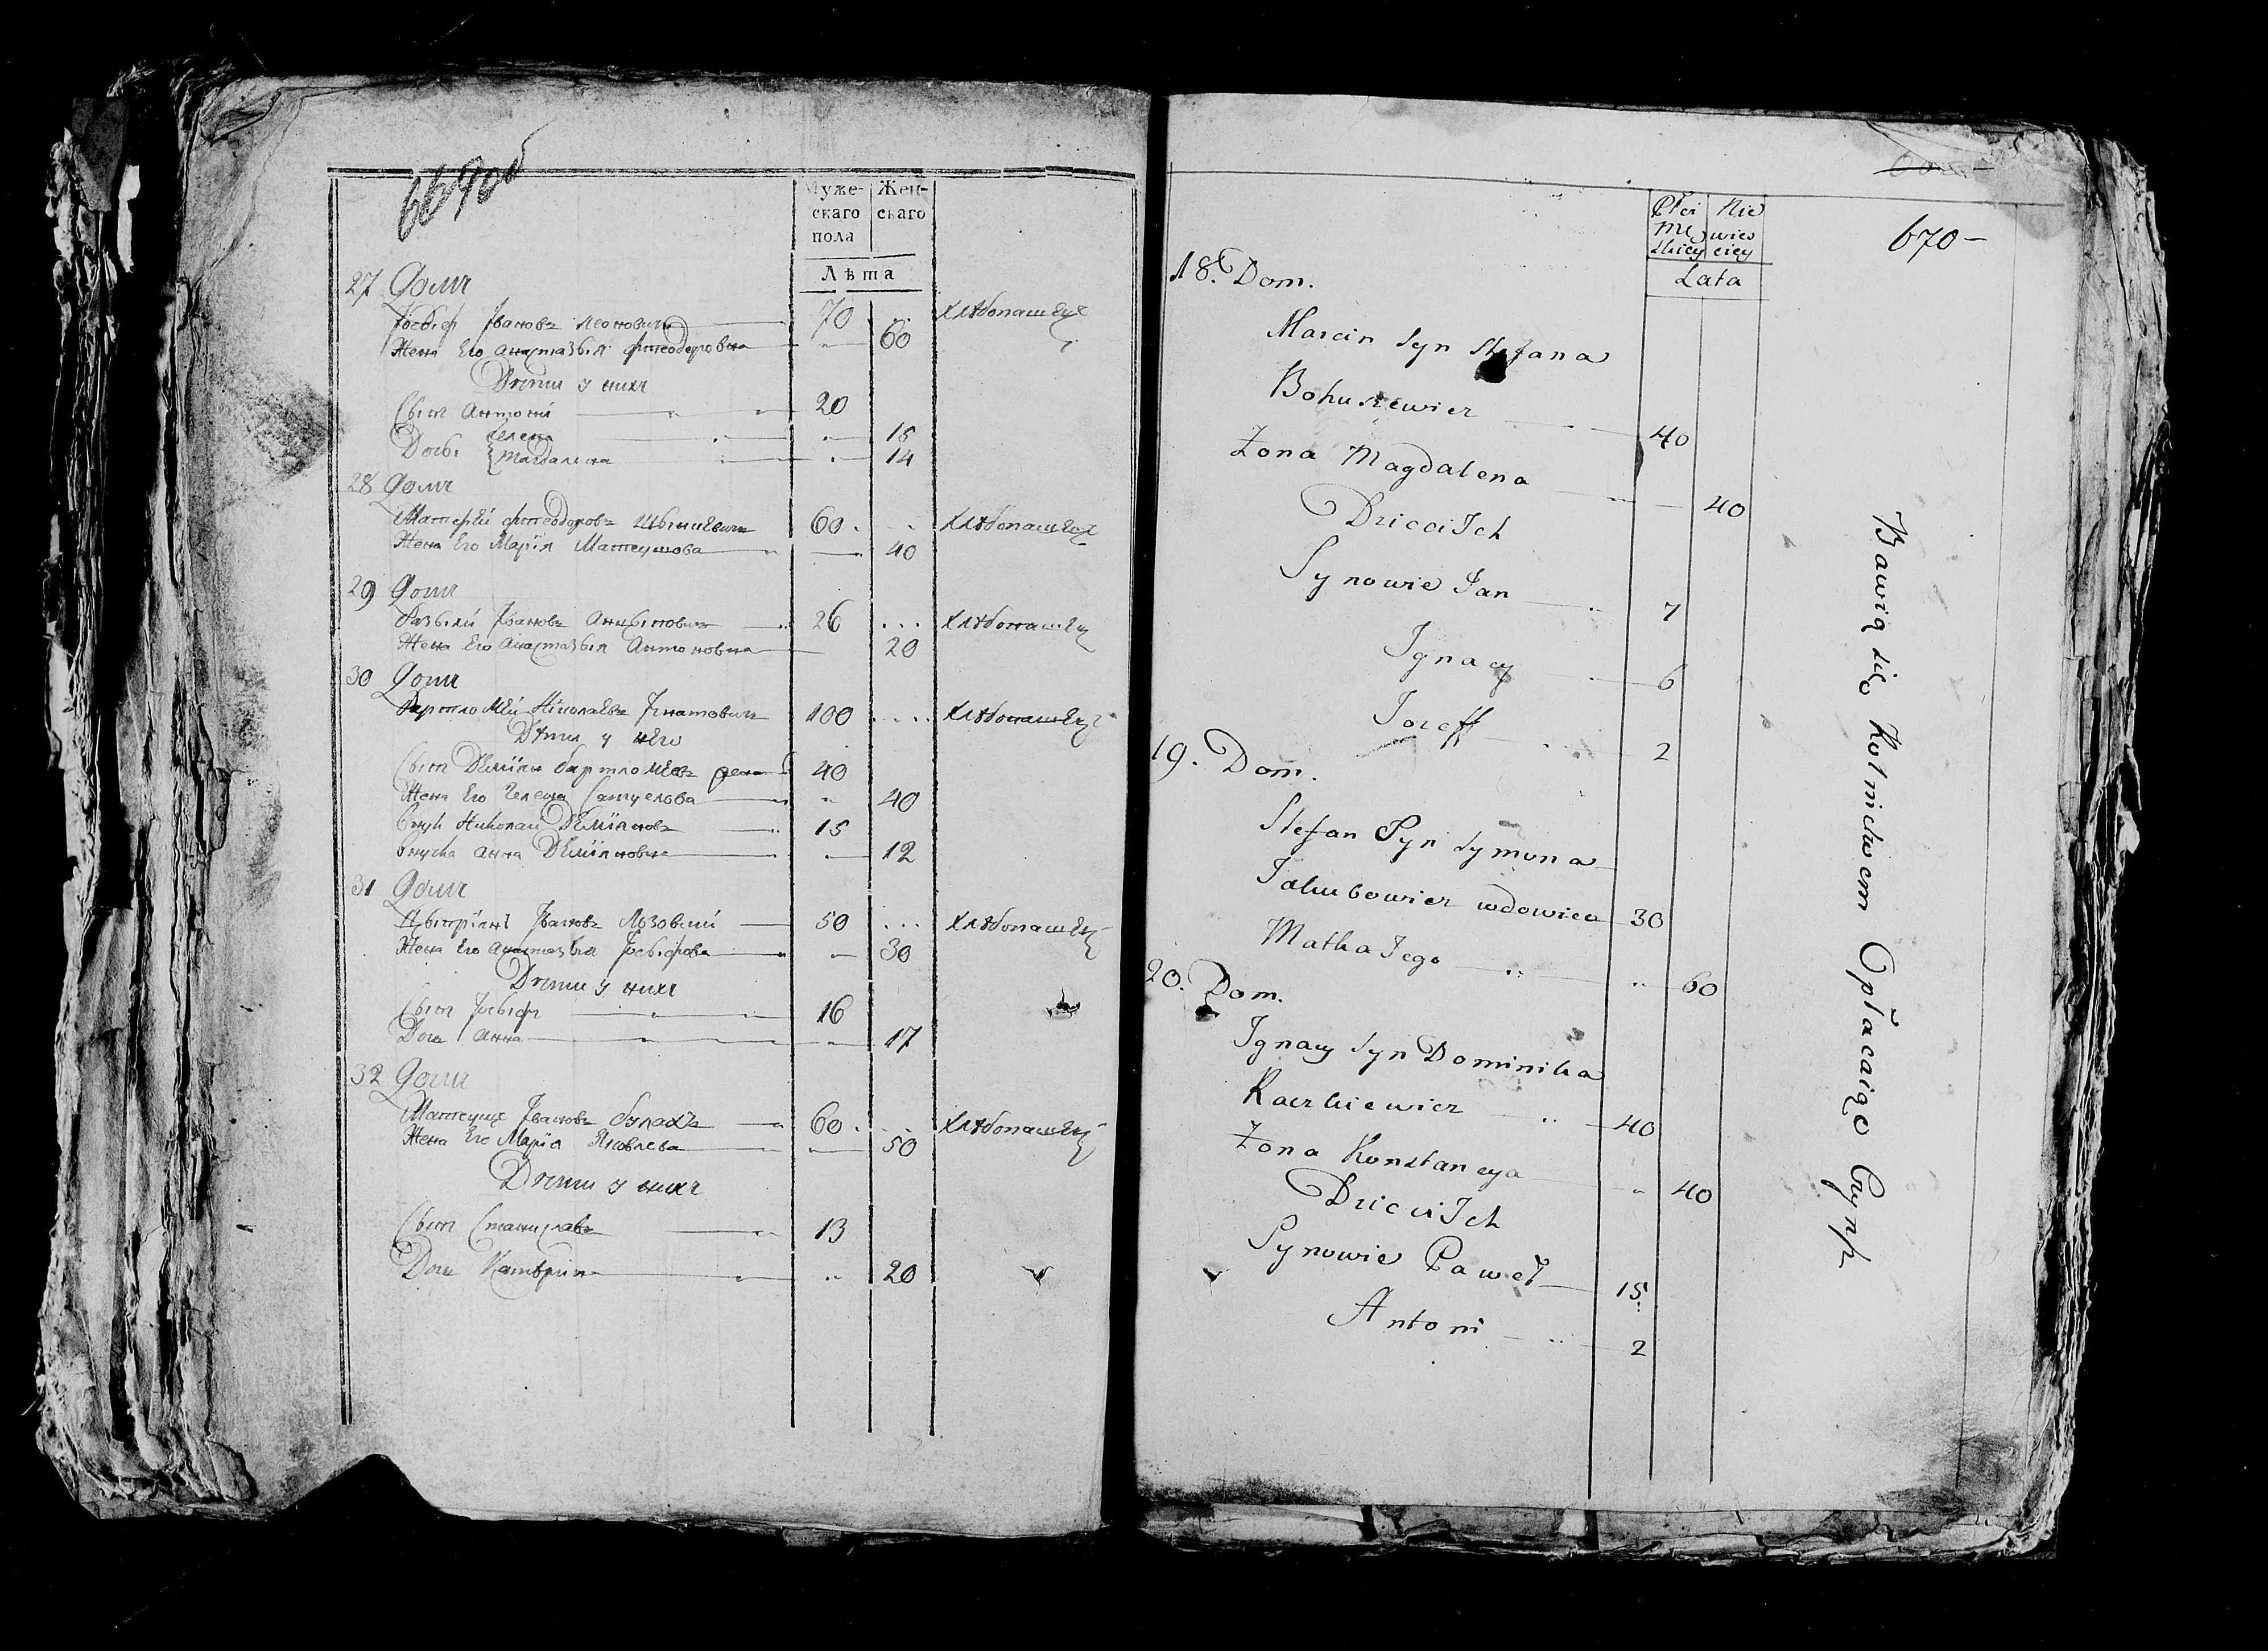 669 об
Муже- Жен-
скаго скаго
пола
Лѣта
27 Домъ
Іосыф Ивановъ Леоновичъ 70 .. Хлѣбопашец
Жена Его Анастазыя Фтеодоровна 60
Дѣти у нихъ
Сынъ Антоній 20
Гелена 15
Дочь Магдалена 14
28 Домъ
Матфей Фтеодоровъ 60 . Хлѣбопашец
Жена Его Марія Матеушова 40
29 Домъ
Ивановъ 26 ... Хлѣбопашец
Жена Его Анастазыя Антоновна 20
30 Домъ
Бартломей Николаевъ Игнатовичъ 100 .... Хлѣбопашец
Дѣти у него
Сынъ Деміянъ Бартломеевъ 40
Жена Его Гелена Самуелова 40
Внукъ Николай Деміяновъ 15
Внучка Анна Деміяновна 12
31 Домъ
Ивановъ Лозовскій 50 ... Хлѣбопашец
Жена Его Анастазыя Іосыфова 30
Дѣти у нихъ
Сынъ Іосыф 16
Дочь Анна 17
32 Домъ
Матеушъ Ивановъ Булахъ 60 . Хлѣбопашец
Жена Его Марія Яковлева 50
Дѣти у нихъ
Сынъ Станиславъ 13
Дочь Катерина 20
670 -
Płci Nie
Mę wies
skiey ciey
Lata
18. Dom.
Marcin Syn Stefana
Bohuszewicz 40
Zona Magdalena 40
Dzieci Ich
Synowie Jan 7
Ignacy 6
Jozeff 2
19. Dom.
Stefan Syn Symona
Jakubowicz wdowiec 30
Matka Jego 60
20. Dom.
Ignacy Syn Dominika
Kaczkiewicz 40
Zona Konstancya 40
Dzieci Ich
Synowie Paweł 15
Antoni 2
Bawią się Rolnictwem Opłacaiąc Czynsz